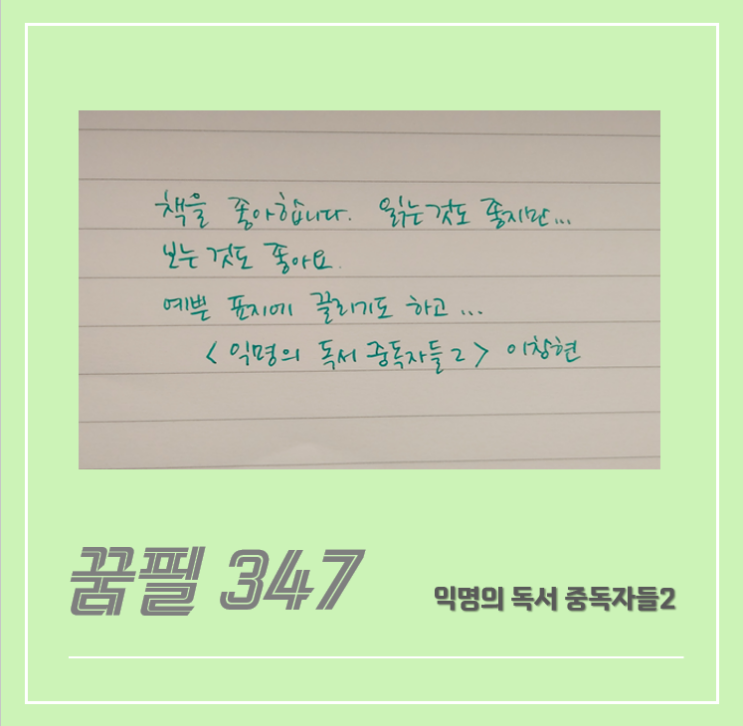 책을 좋아합니다. 읽는것도 좋지만...
보는 것도 좋아요.
예쁜 표지에 끌리기도 하고...
<익명의 독서 중독자들2> 이창현
꿈펠 347
익명의 독서 중독자들2